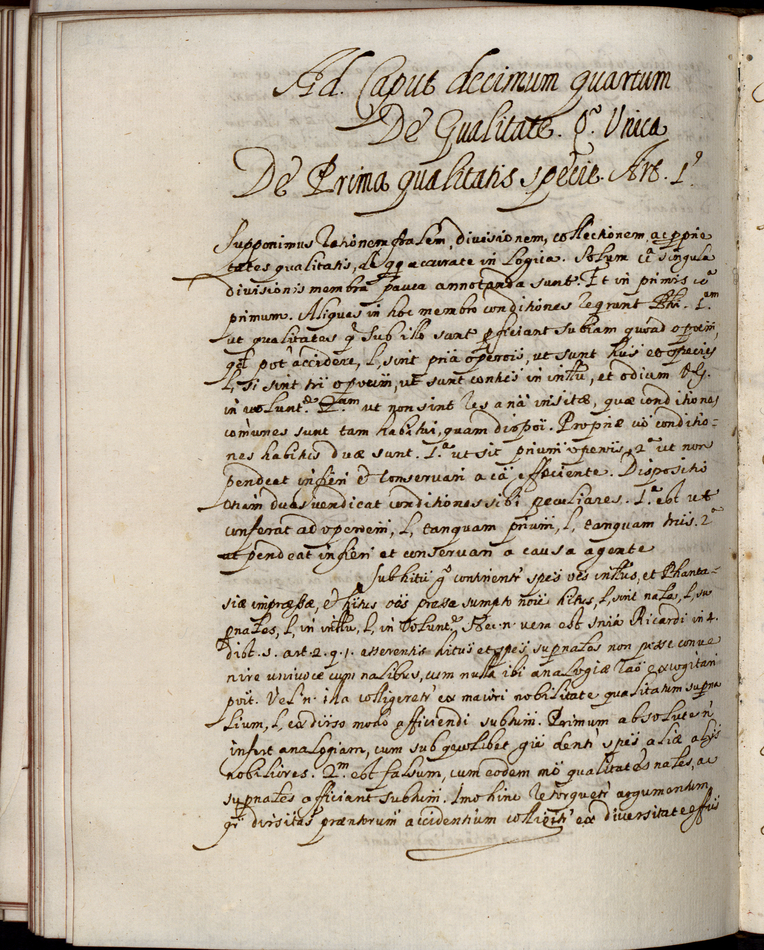 Ad. Caput decimum quartum
De Qualitate. Q.ª Unica
De Prima qualitatis specie. Art. 1.º
Supponimus rationem formalem, divisionem, collectionem, ac pprie
tates qualitatis, de qq accurate in Logica. Solum cª singula
divisionis membra pauca annotanda sunt. Et in primis cª
primum. Aliques in hoc membro conditiones reqrunt 1.am
ut qualitates q Sub illo sunt pficiant Subiam quoad opoem,
pot accidere, l, sint pria operois, ut sunt hus et species
l, si sint tri opoem, ut sunt conteis in intlu, et odium
in volunt.e 2.am ut non sint res ana insitæ, quæ conditiones
comunes sunt tam habitui, quam dispoi. Propriæ vo conditio-
nes habitus duæ sunt. 1.ª ut sit prium operis, 2.ª ut non
pendeat in fieri & conservari a ca efficiente. Dispositio
etiam duas vendicat conditiones sibi peculiares. 1.ª est ut
conferat ad operoem, l, tanquam prium, l, tanquam triis. 2.ª
ut pendeat in fieri et conservari a causa agente
Sub hitu q continentr speis oes intlus, et Phanta-
siæ impressæ, & hitus oes presse sumpto noie hitus, l, sint nales, l, su
pnales, l, in intlu, l, in volunt.e Hæc n. vera est snia Ricardi in 4.
dist. 1. art. 2. q. 1. asserentis hitus et speis supnales non posse conve
nire univoce cum nalibus, cum nulla ibi analogiæ rao excogitari
poit. Vel n. illa colligeretr ex maiori nobilitate qualitatum supna
lium, l, ex diverso modo afficiendi subtum. Primum absolute n
infert analogiam, cum sub quolibet gne dentr speis aliæ aliis
nobiliores. 2.m est falsum, cum eodem mo qualitates nales, ac
supnales afficiant subtum. Imo hinc retorquetr argumentum
qr diversitas præntorum accidentium colligitr ex diversitate effus